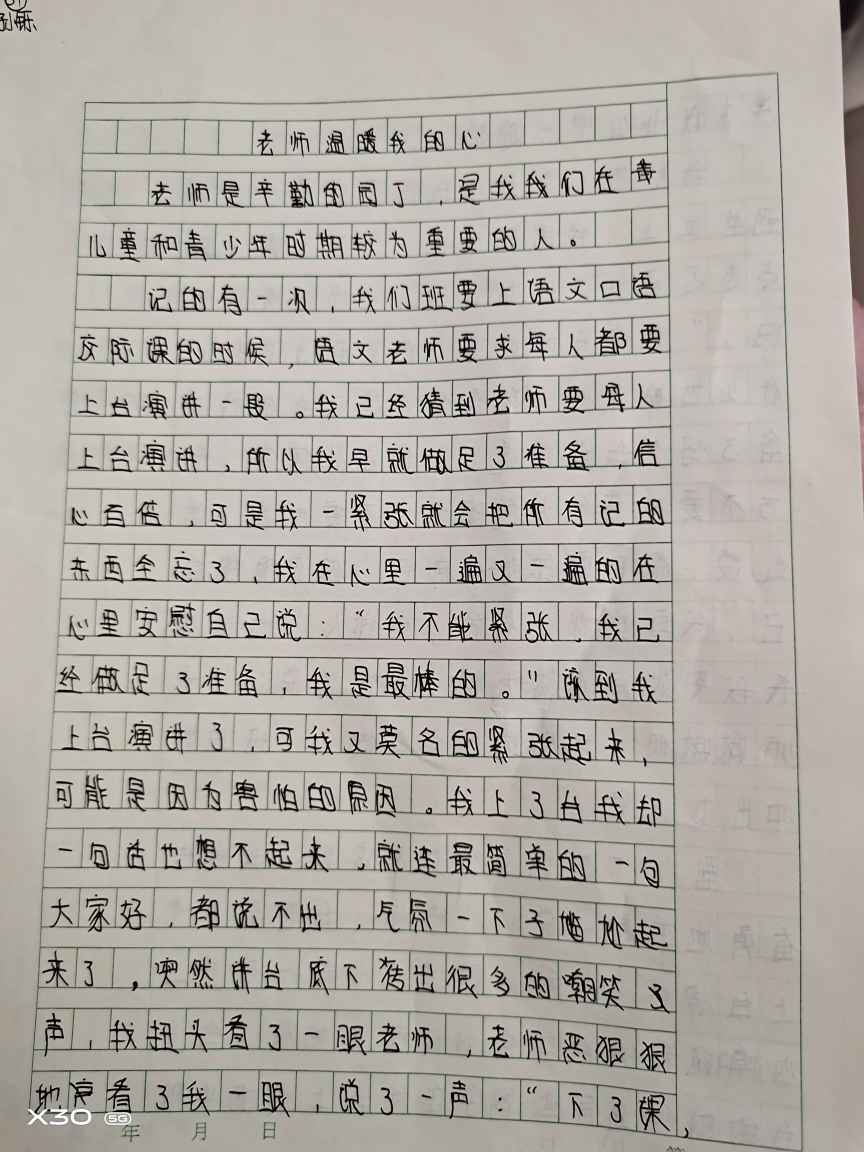 老师温暖我的心
老师是辛勤的园丁，是我我们在
儿童和青少年时期较为重要的人。
记的有一次，我们班要上语文口语
交际课的时候，语文老师要求每人都要
上台演讲一段。我已经猜到老师要每人
上台演讲，所以我早就做足了准备，信
心百倍，可是我一紧张就会把所有记的
东西全忘了，我在心里一遍又一遍的在
心里安慰自己说：“我不能紧张，我已
经做足了准备，我是最棒的。”该到我
上台演讲了，可我又莫名的紧张起来，
可能是因为害怕的原因。我上了台我却
一句话也想不起来，就连最简单的一句
大家好，都说不出，气氛一下子尴尬起
来了，突然讲台底下传出很多的嘲笑
声，我扭头看了一眼老师，老师恶狠狠
地看了我一眼，说了一声：“下了课，
X30 5G
年 月 日